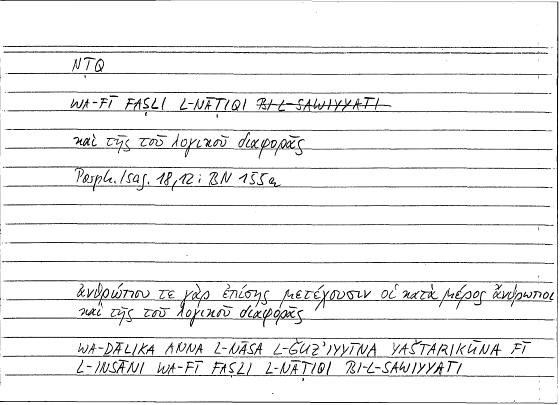 NṬQ
WA-FĪ FAṢLI L-NĀṬIQI BI-L-SAWIYYATI
καὶ τῆς τοῦ λογικοῦ διαφορᾶς
Porph. Isag. 18,12: BN 155a
ἀνθρώπου τε γὰρ ἐπίσης μετέχουσιν οἱ κατὰ μέρος ἄνθρωποι
καὶ τῆς τοῦ λογικοῦ διαφορᾶς
WA-ḎĀLIKA ANNA L-NĀSA L-ǦUZʾIYYĪNA YAŠTARIKŪNA FĪ
L-INSĀNI WA-FĪ FAṢLI L-NĀṬIQI BI-L-SAWIYYATI